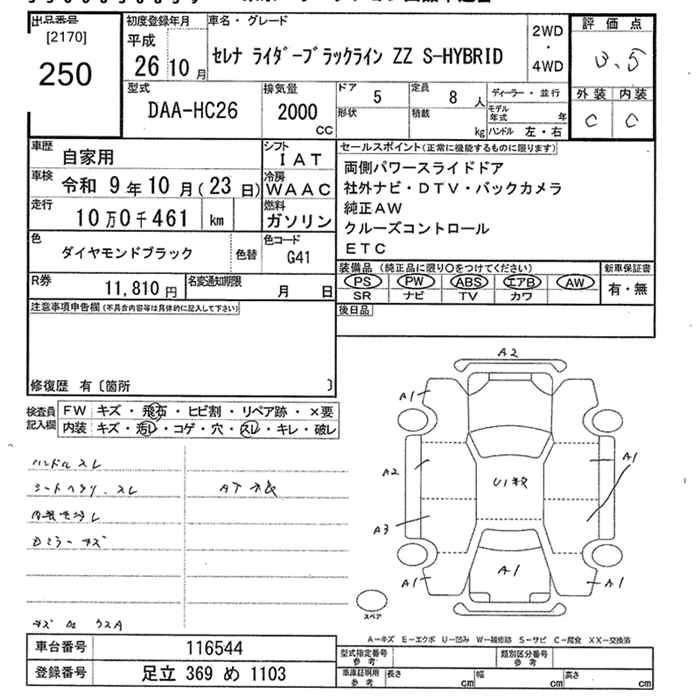 出品番号
[2170]
250
初度登録年月
平成
26 10 月
車名・グレード
セレナ ライダーブラックライン ZZ S-HYBRID
2WD
・
4WD
評価点
3.5
外装 内装
C C
型式
DAA-HC26
排気量
2000
CC
ドア
5
定員
8 人
形状
積載
kg
ディーラー・並行
モデル
年式
年
ハンドル 左・右
車歴
自家用
シフト
IAT
車検
令和 9年 10月(23日)
冷房
WAAC
走行
10万0千461 km
燃料
ガソリン
色
ダイヤモンドブラック
色替
色コード
G41
R券
11,810 円
名変通知期限
月 日
セールスポイント(正常に機能するものに限ります)
両側パワースライドドア
社外ナビ・DTV・バックカメラ
純正AW
クルーズコントロール
ETC
装備品(純正品に限り○をつけてください)
PS PW ABS エアB AW
SR ナビ TV カワ
新車保証書
有・無
後日品
注意事項申告欄(不具合内容等は具体的に記入して下さい)
修復歴 有〔箇所 〕
検査員
記入欄
FW キズ・飛石・ヒビ割・リペア跡・×要
内装 キズ・汚レ・コゲ・穴・スレ・キレ・破レ
ハンドルスレ
シートヘタリ、スレ
A2
A1
A2
A1
A3
A1
A1
A1
スペア
A-キズ E-エクボ U-凹み W-補修跡 S-サビ C-腐食 XX-交換済
車台番号
116544
登録番号
足立 369 め 1103
型式指定番号
参考
類別区分番号
参考
車庫証明用
参考
長さ
cm
幅
cm
高さ
cm